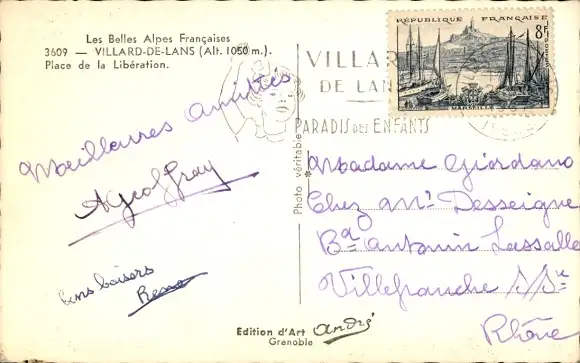 Les Belles Alpes Françaises
3609 - VILLARD-DE-LANS (Alt. 1050 m).
Place de la Libération.
RÉPUBLIQUE FRANÇAISE
8F
MARSEILLE
VILLAR
DE LAN
PARADIS DES ENFANTS
Meilleures Amitiés
AGeoffray
bons baisers
Photo véritable
Madame Giordano
Chez Mr Desseigne
Bd antonin Lassalle
Villefranche s/Sne
Rhône
Edition d'Art André
Grenoble